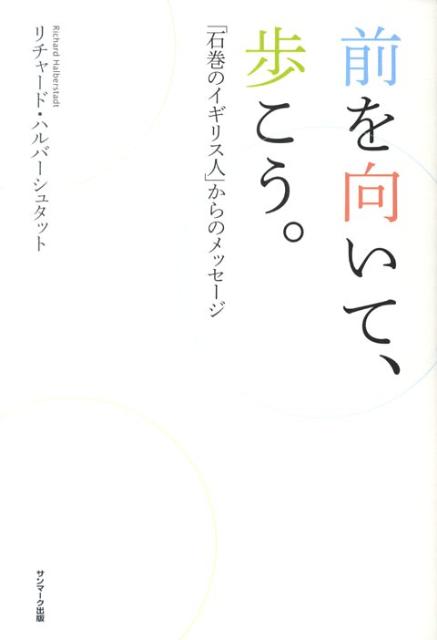 前を向いて、
歩こう。
「石巻のイギリス人」からのメッセージ
Richard Halberstadt
リチャード・ハルバーシュタット
サンマーク出版